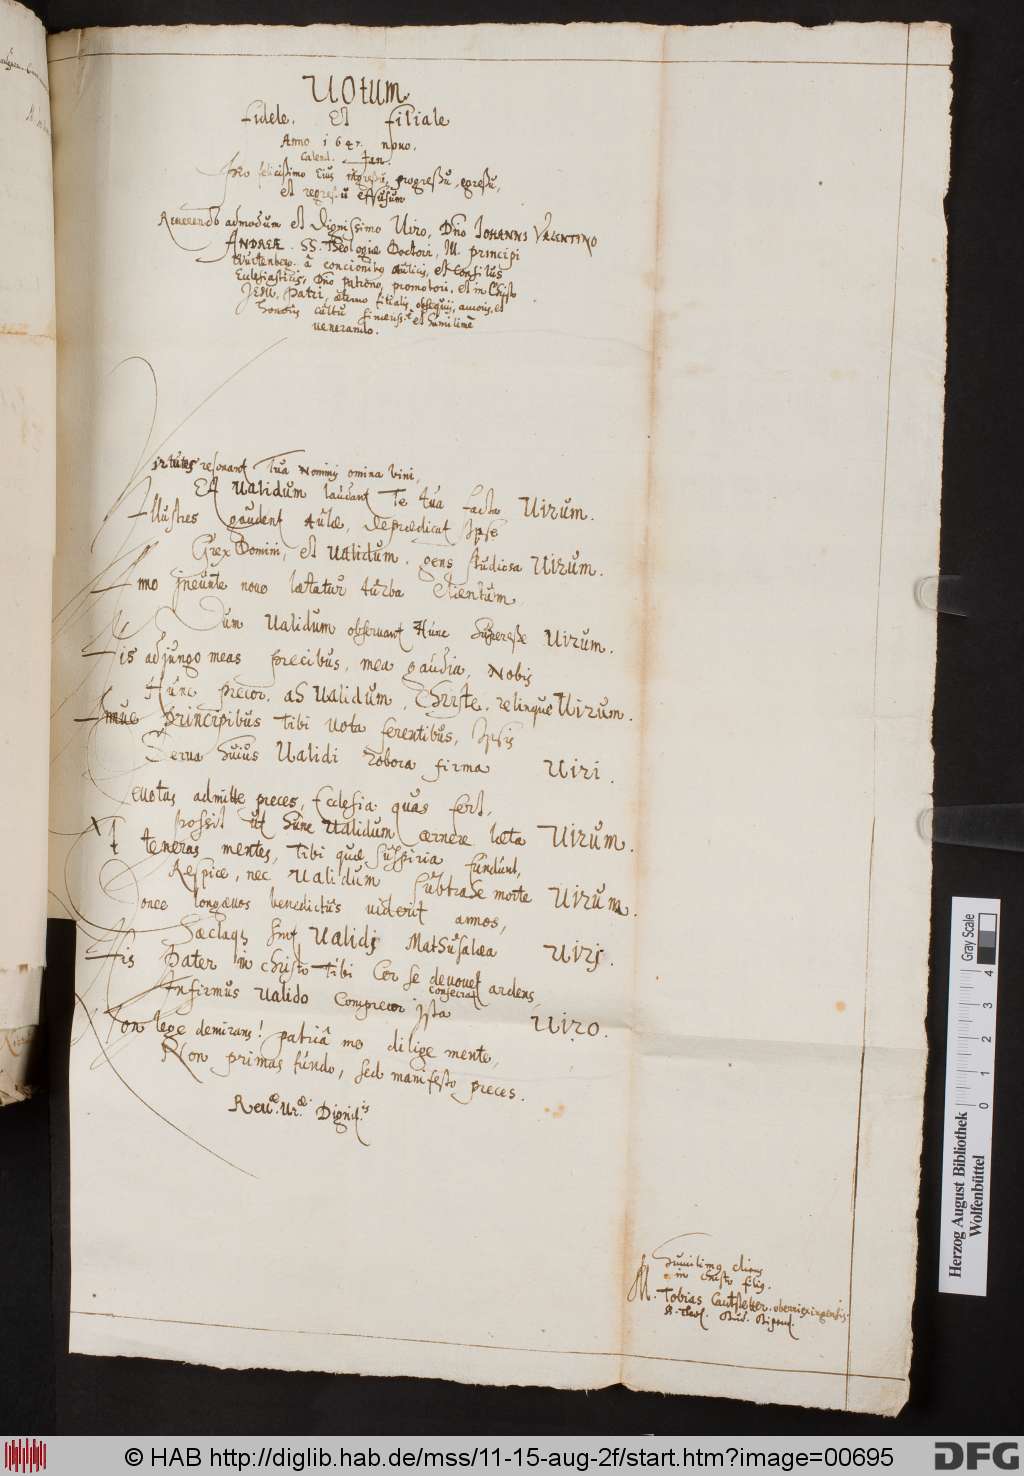 VOtum
fidele. Et filiale
Anno 1647. novo.
Calend. Jan.
pro felicissimo Eius ingressu, progressu, egressu,
et regressu effusum
Reverendo admodum et Dignissimo Viro, Dno IOHANNI VALENTINO
ANDREÆ. SS. Theologiæ Doctori, Ill. principi
Würtenberg. â concionibus aulicis, et Consiliis
Ecclesiasticis, Dno patrono, promotori, et in Christo
JESU, Patri, æterno filialis obsequii, amoris, et
honoris cultu et humilimè
venerando.
irtutes resonant Tua Nominis omina bini,
Et Validum laudant Te tua facta Virum.
Illustres gaudent Aulæ, depraedicat Ipse
Grex Domini, et Validum gens studiosa Virum.
Anno Ineunte novo lætatur turba Clientum,
Dum Validum observant Hunc superesse Virum.
His adjungo meas precibus, mea gaudia, Nobis
Hunc precor, ah Validum, Christe, relinque Virum.
principibus Tibi vota ferentibus, Ipsis
Serva huius Validi robora firma Viri.
evotas admitte preces, Ecclesia quas fert,
possit ut hunc Validum cernere læta Virum.
t teneras mentes, Tibi quæ suspiria fundunt,
Respice, nec Validum subtrahe morte Virum.
Donec longævos benedictus viderit annos,
Sæclaq; sint Validi Mathusalæa Viri.
His Pater in christo Tibi Cor se devovet ardens,
consecrat
Infirmus Valido Comprecor ista Viro.
Non lege demirans! patriâ me dilige mente,
Non primas fundo, sed manifesto preces.
Reve. Vræ. Dignit.is
Humilimq cliens
in christo filiq.
M. Tobias Cantstetter. oberriexingensis.
S. Theol. Stud. Stipend.
Herzog August Bibliothek
Wolfenbüttel
0 1 2 3 4
Gray Scale
© HAB http://diglib.hab.de/mss/11-15-aug-2f/start.htm?image=00695
DFG